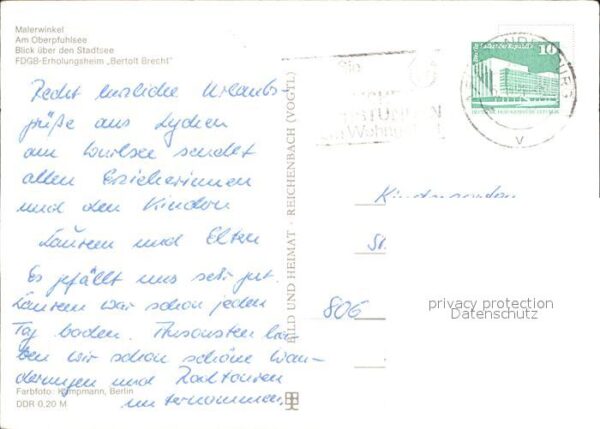 Malerwinkel
Am Oberpfuhlsee
Blick über den Stadtsee
FDGB-Erholungsheim „Bertolt Brecht"
Recht herzliche Urlaubs-
grüße aus Lychen
am Wurlsee sendet
allen Erzieherinnen
und den Kindern
und Eltern
Es gefällt uns sehr gut.
war schon jeden
Tag baden. Ansonsten ha-
ben wir schon schöne Wan-
derungen und Radtouren
unternommen.
Farbfoto: Kampmann, Berlin
DDR 0,20 M
BILD UND HEIMAT · REICHENBACH (VOGTL)
10
Kindergarten
806
privacy protection
Datenschutz